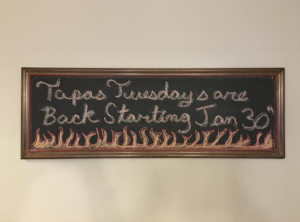 Tapas Tuesdays are
Back Starting Jan 30"